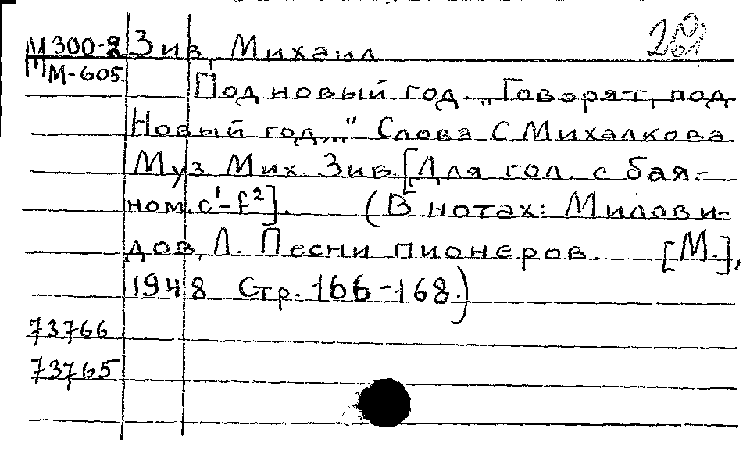 М300-2 Зив, Михаил
М-605
Под новый год. „Говорят, под
Новый год..." Слова С Михалкова
Муз Мих Зив [Для гол. с бая-
ном. c¹-f²]. (В нотах: Милови-
дов, Л. Песни пионеров. [М.],
1948 Стр. 166-168.)
73766
73765